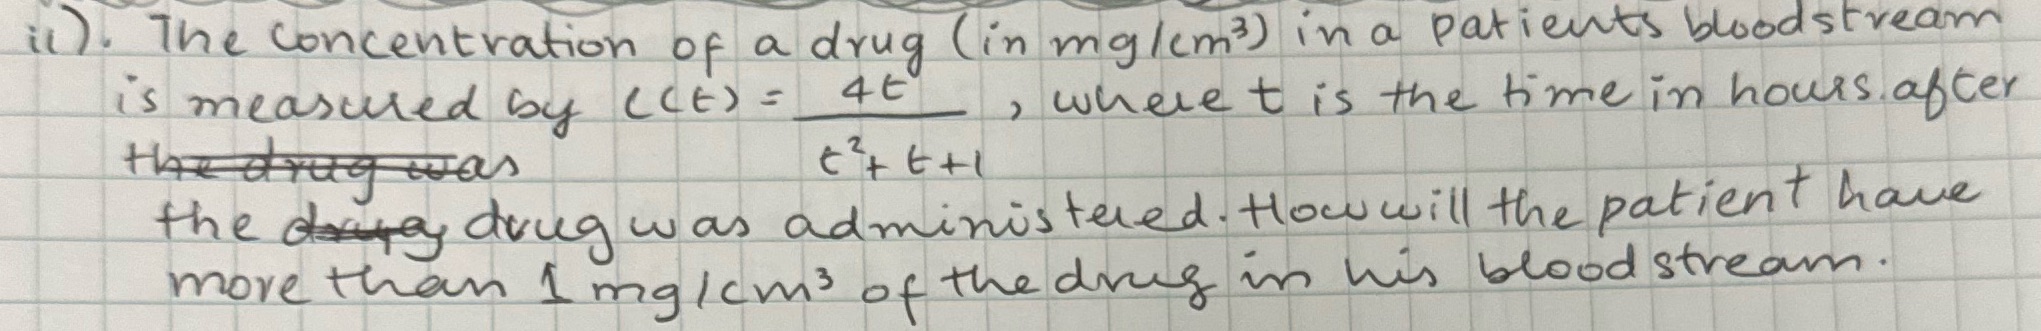 ii). The concentration of a drug (in mg/cm³) in a patients bloodstream
is measured by C(t) = 4t / t² + t + 1 , where t is the time in hours after
the drug was
the drug drug was administered. How will the patient have
more than 1 mg/cm³ of the drug in his bloodstream.